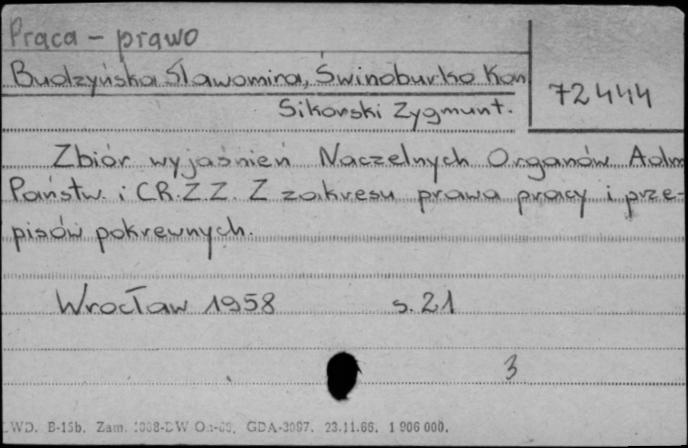 Praca - prawo
Budzyńska Sławomira, Świnoburko Kon
72444
Sikorski Zygmunt.
Zbiór wyjaśnień Naczelnych Organów Adm
Państw. i CR.Z.Z. Z zakresu prawa pracy i prze-
pisów pokrewnych.
Wrocław 1958 s. 21
3
LWD. B-15b. Zam. GDA-3097. 23.11.66. 1 906 000.